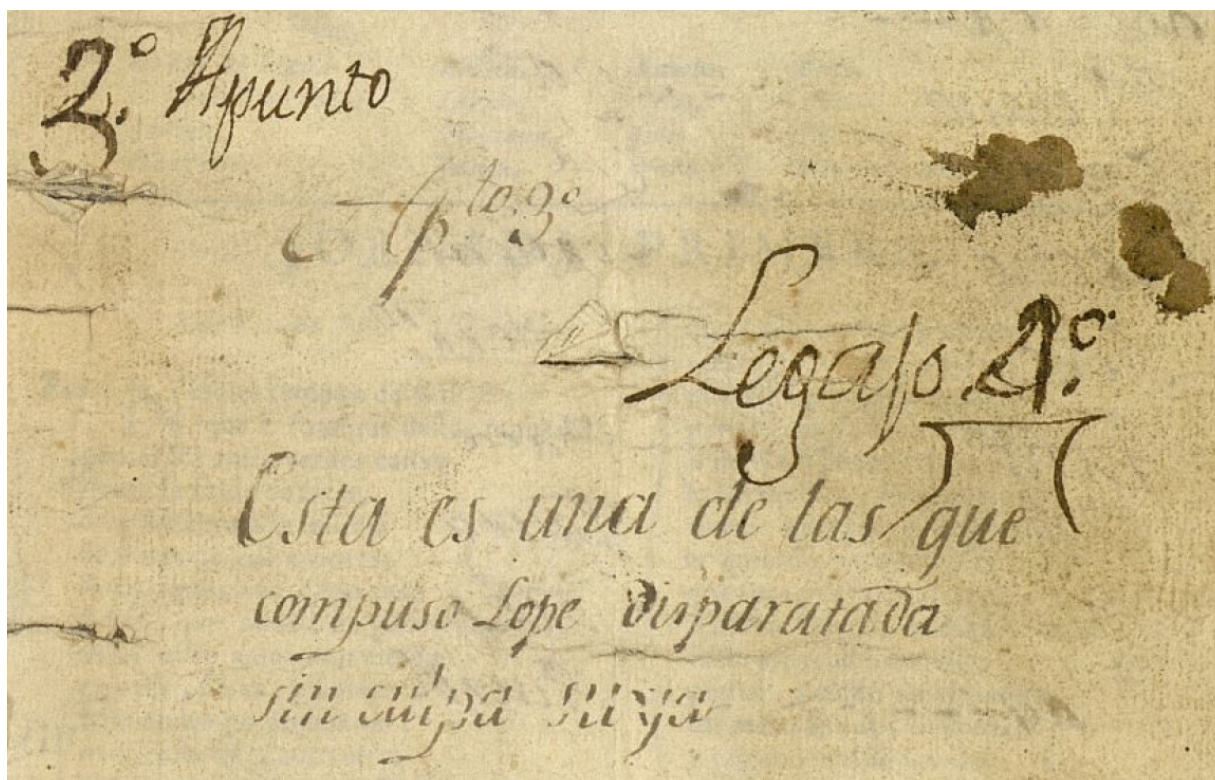 2.º Apunto
Legajo. 4.º
Esta es una de las que
compuso Lope disparatada
sin culpa suya